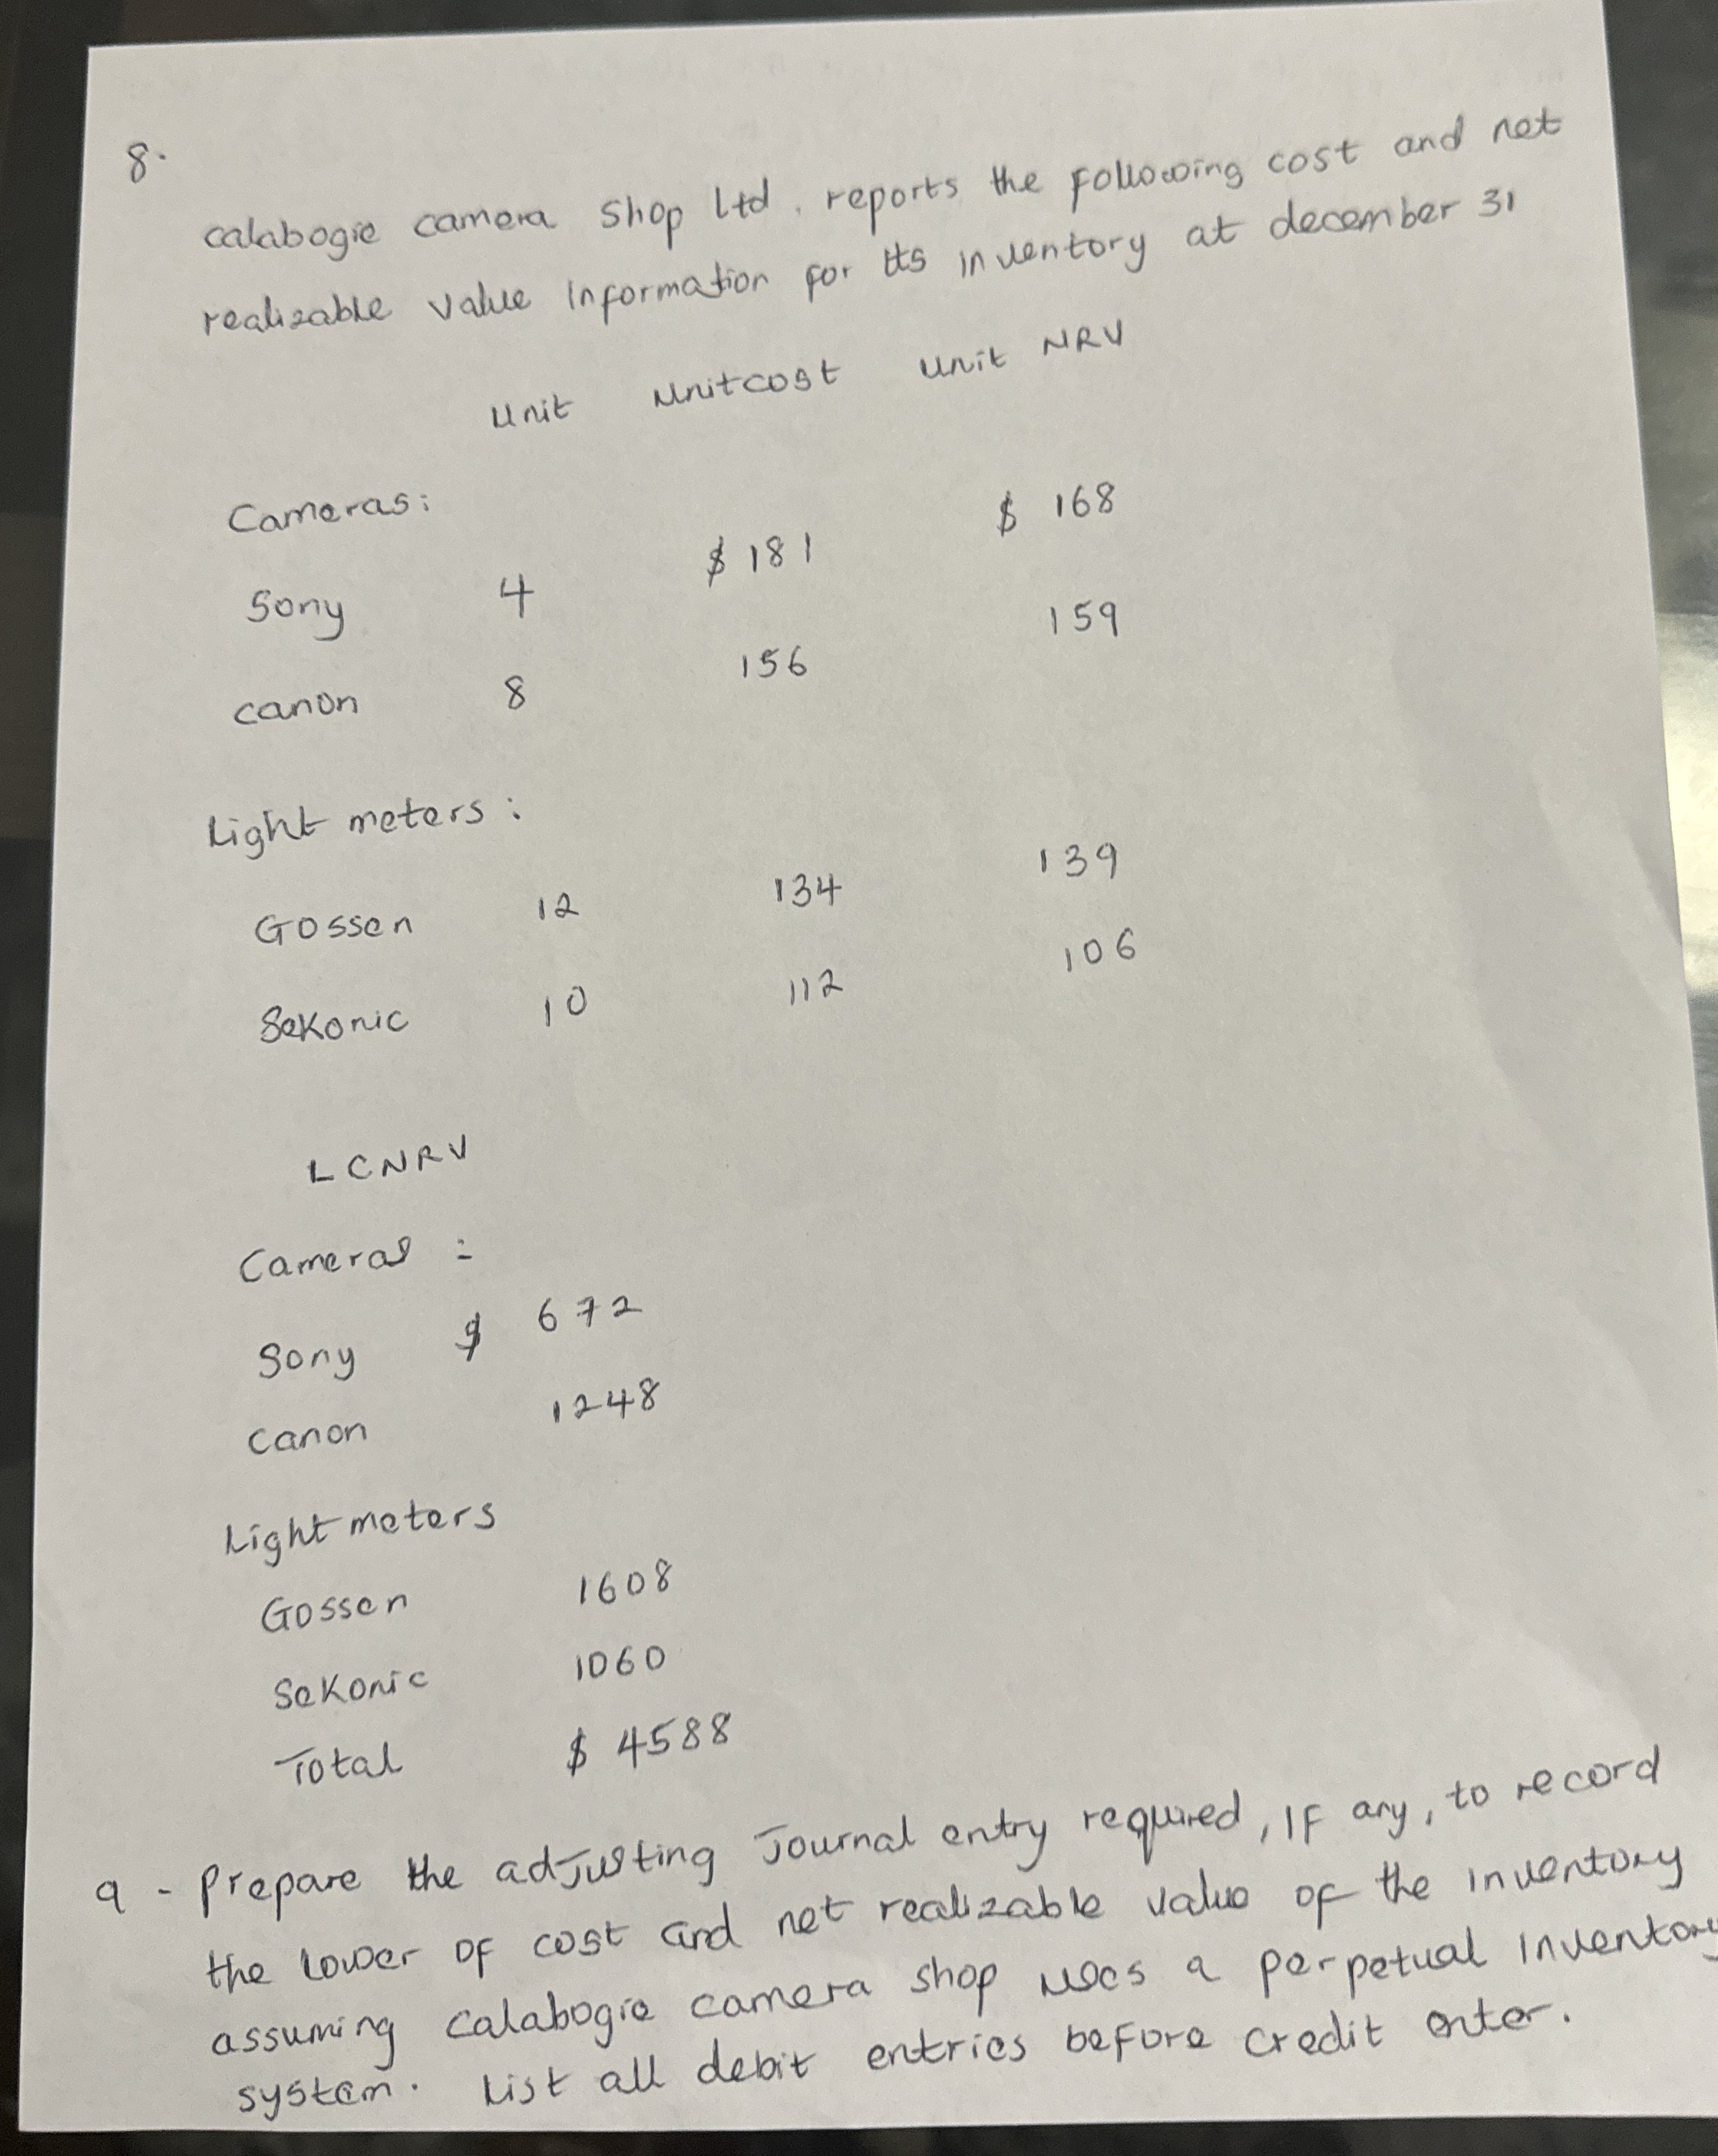 8.
calabogie camera shop Ltd. reports the following cost and net
realizable value information for its inventory at december 31
Unit Unitcost Unit NRV
Cameras:
Sony 4 $ 181 $ 168
canon 8 156 159
Light meters:
Gossen 12 134 139
Sekonic 10 112 106
LCNRV
Cameras :
Sony $ 672
canon 1248
Light meters
Gossen 1608
Sekonic 1060
Total $ 4588
9 - Prepare the adjusting Journal entry required, If any, to record
the lower of cost and net realizable value of the inventory
assuming calabogie camera shop uses a perpetual inventory
system. List all debit entries before credit enter.